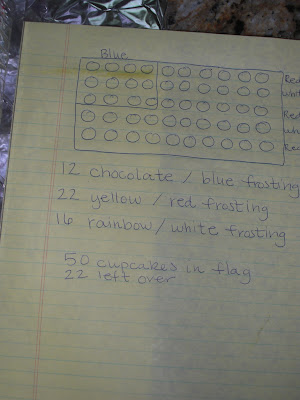 Blue
Red
white
Red
Red
12 chocolate / blue frosting
22 yellow / red frosting
16 rainbow / white frosting
50 cupcakes in flag
22 left over